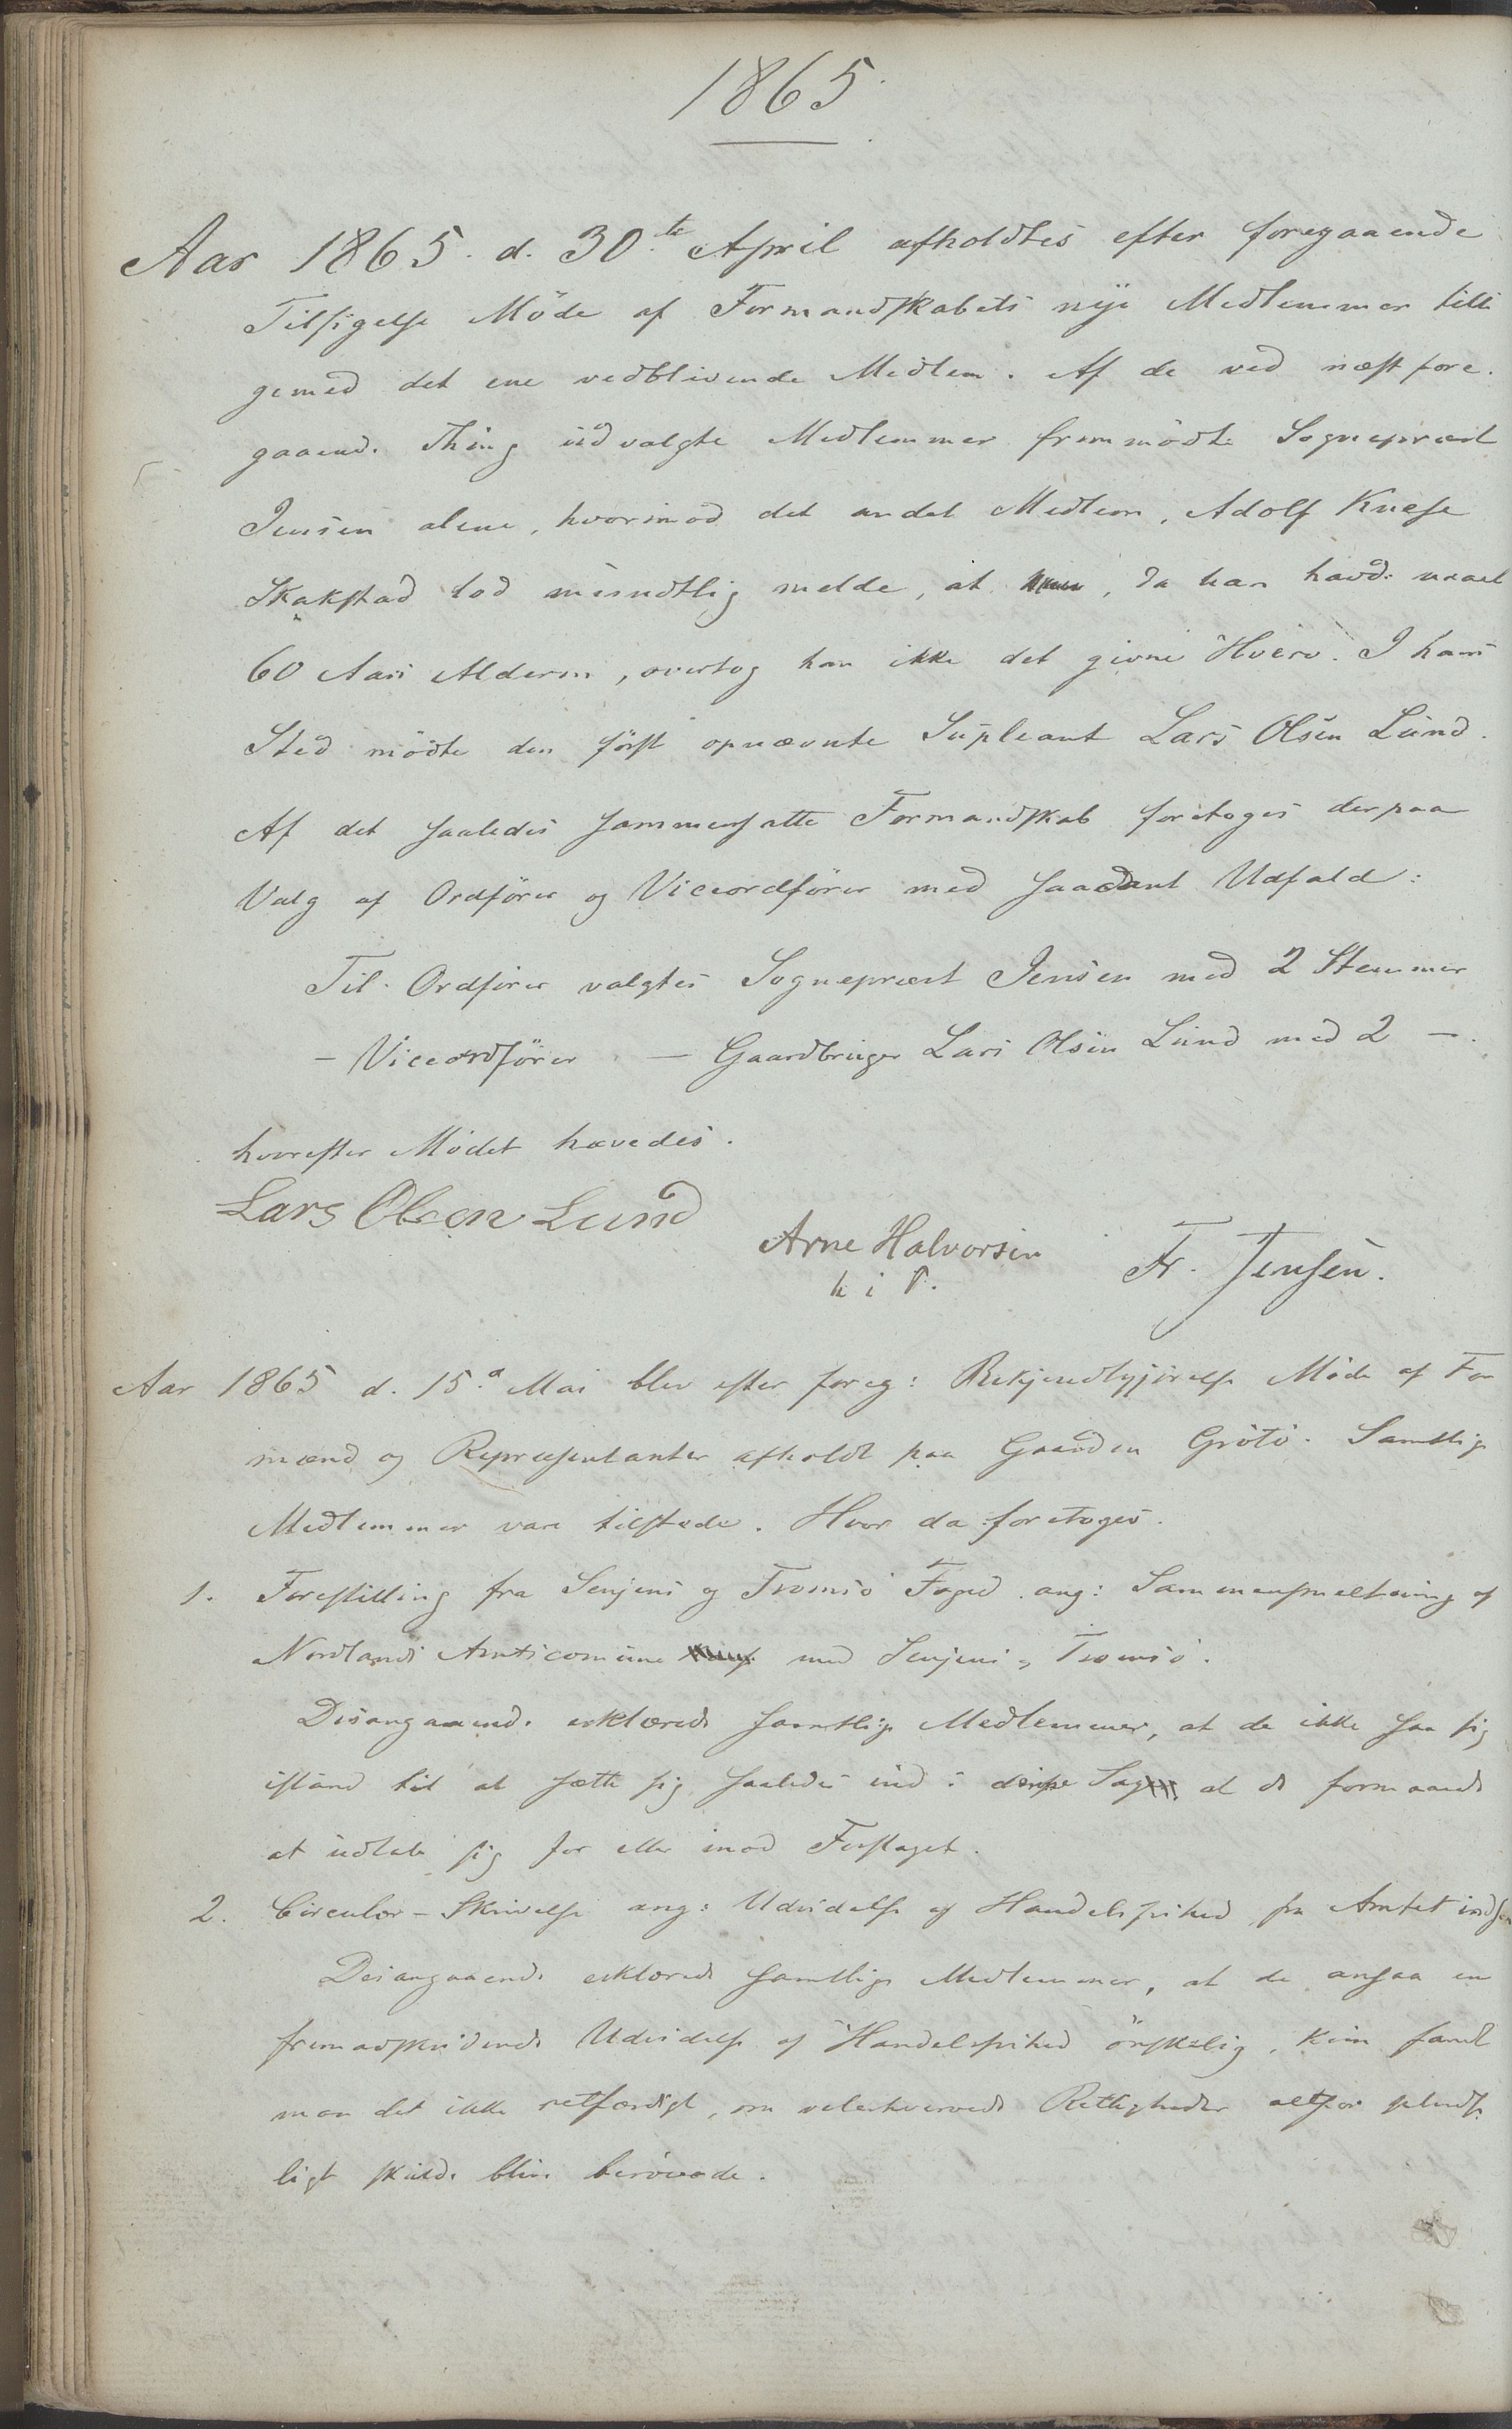 1865.
Aar 1865. d. 30te April afholdtes efter foregaaende
Tilsigelse Möde af Formandskabets nye Medlemmer tilli
gemed det ene vedblivende Medlem. Af de ved næst fore-
gaaende Thing udvalgte Medlemmer fremmödte Sognepræst
Jensen alene, hvorimod det andet Medlem, Adolf Kuese
Skakstad lod mundtlig melde, at , da han havde naaet
60 Aars Alderen, overtog han ikke det givne Hverv. I hans
Sted mödte den först opnævnte Supleant Lars Olsen Lund.
Af det saaledes sammensatte Formandskab foretoges derpaa
Valg af Ordförer og Viceordförer med saadant Udfald:
Til Ordförer valgtes Sognepræst Jensen med 2 Stemmer
- Viceordförer - Gaardbruger Lars Olsen Lund med 2 -.
hvorefter Mödet hævedes.
Lars Olsen Lund
Arne Halvorsen
Fr. Jensen.
Aar 1865 d. 15d Mai blev efter foreg: Bekjendtgjörelse Möde af For
mænd og Repræsentanter afholdt paa Gaarden Grötö. Samtlige
Medlemmer vare tilstede. Hvor da foretoges.
1. Forestilling fra Senjens og Tromsö Foged ang: Sammensmeltning af
Nordlands Amtscomune med Senjens og Tromsö.
Desangaaende erklærede samtlige Medlemmer, at de ikke saa sig
istand til at sætte sig saaledes ind i denne Sag at de formaaede
at udtale sig for eller imod Forslaget.
2. Circulær-Skrivelse ang: Udvidelse af Handelsfrihed fra Amtet indsen
Desangaaende erklærede samtlige Medlemmer, at de ansaa en
fremadskridende Udvidelse af Handelsfrihed önskelig, kun fandt
man det ikke retfærdigt, om velerhvervede Rettigheder altfor pludse
ligt skulde blive berövede.